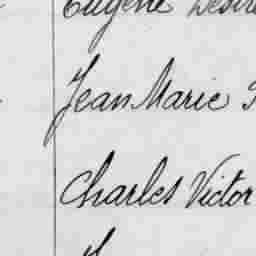 Eugène Désiré
Jean Marie
Charles Victor